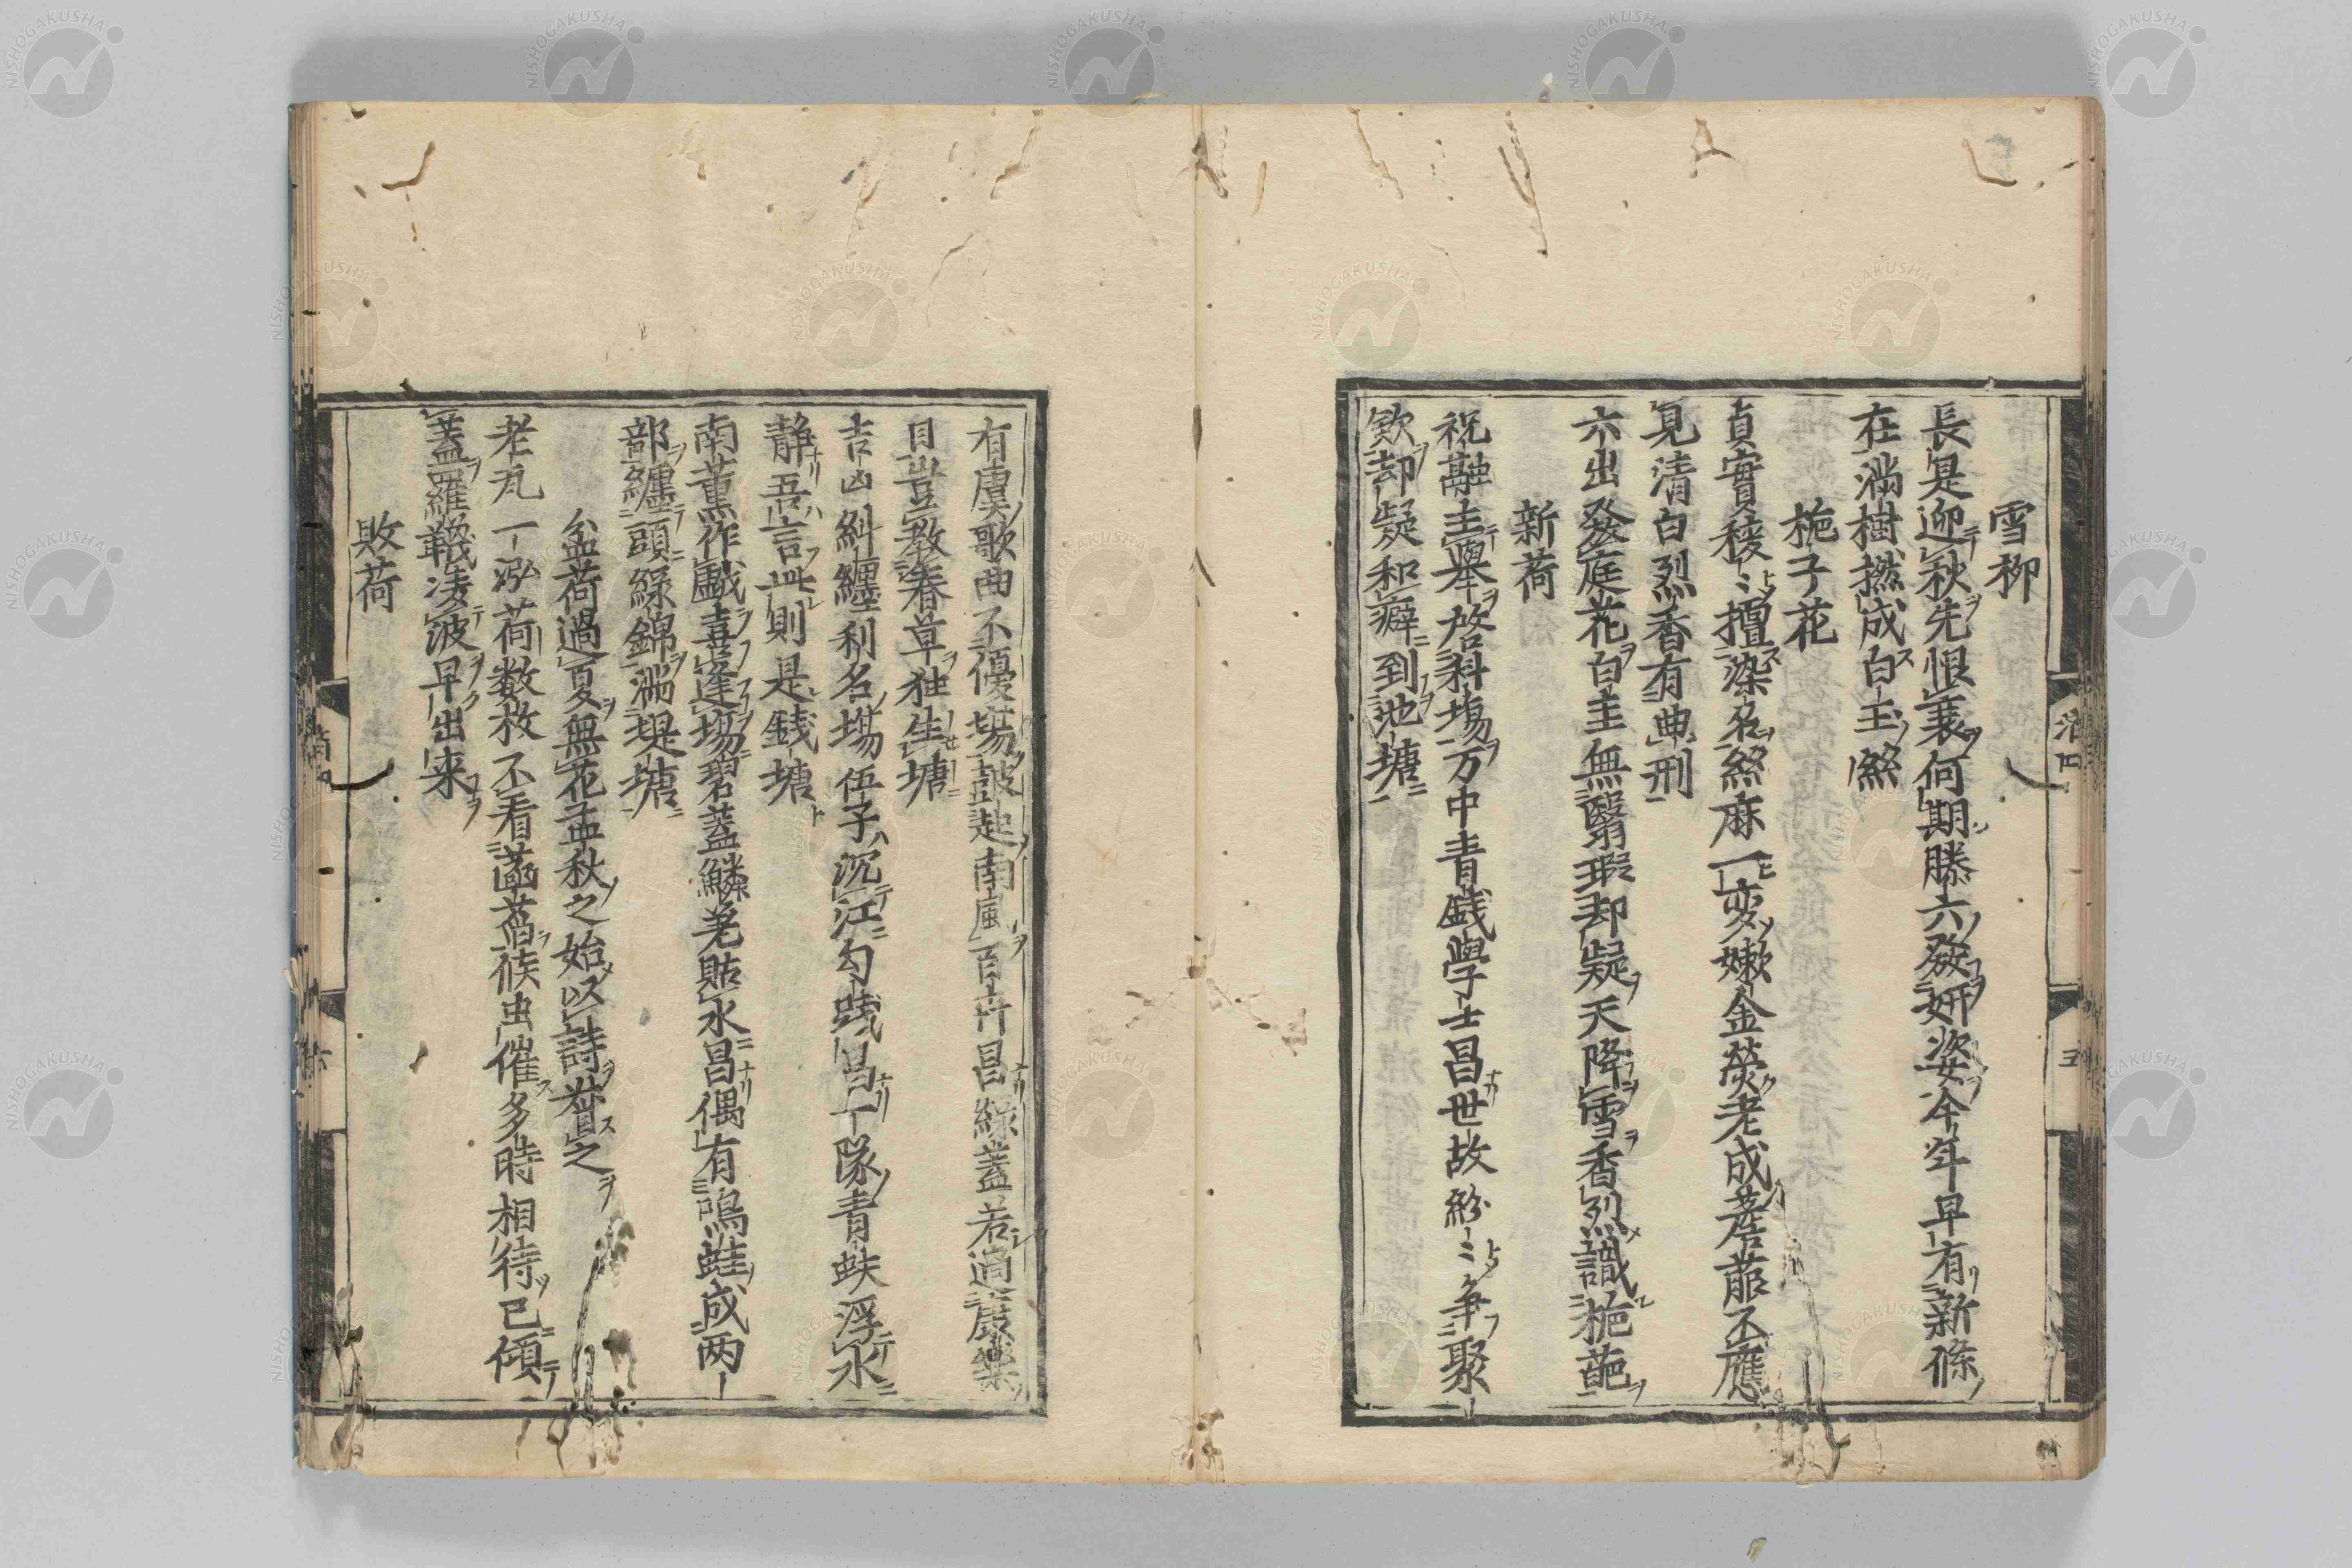 雪柳
長是迎秋先恨衰何期滕六發妍姿今年早有新條
在満樹撚成白玉𦃓
梔子花
貞實稜〻擅染名絲麻一変嫩金熒老成薝蔔不應
見清白烈香有典刑
六出發庭花白圭無翳瑕却疑天降雪香烈識梔葩
新荷
祝融主擧啓科場万中青銭學士昌世故紛〻争聚
欽却疑和癖到池塘
有虞歌曲不優場鼓起南風百卉昌緑蓋若適嚴樂
目豈教春草独生塘
吉凶糾纏利名場伍子沉江勾践昌一隊青蚨浮水
静吾言此則是銭塘
南薫作戯喜逢場碧蓋鱗差貼水昌偶有鳴蛙成两
部纏頭緑錦満堤塘
盆荷過夏無花孟秋之始以詩督之
老瓦一泓荷数枚不看菡萏候虫催多時相待已傾
蓋羅韈凌波早出来
敗荷
五
六